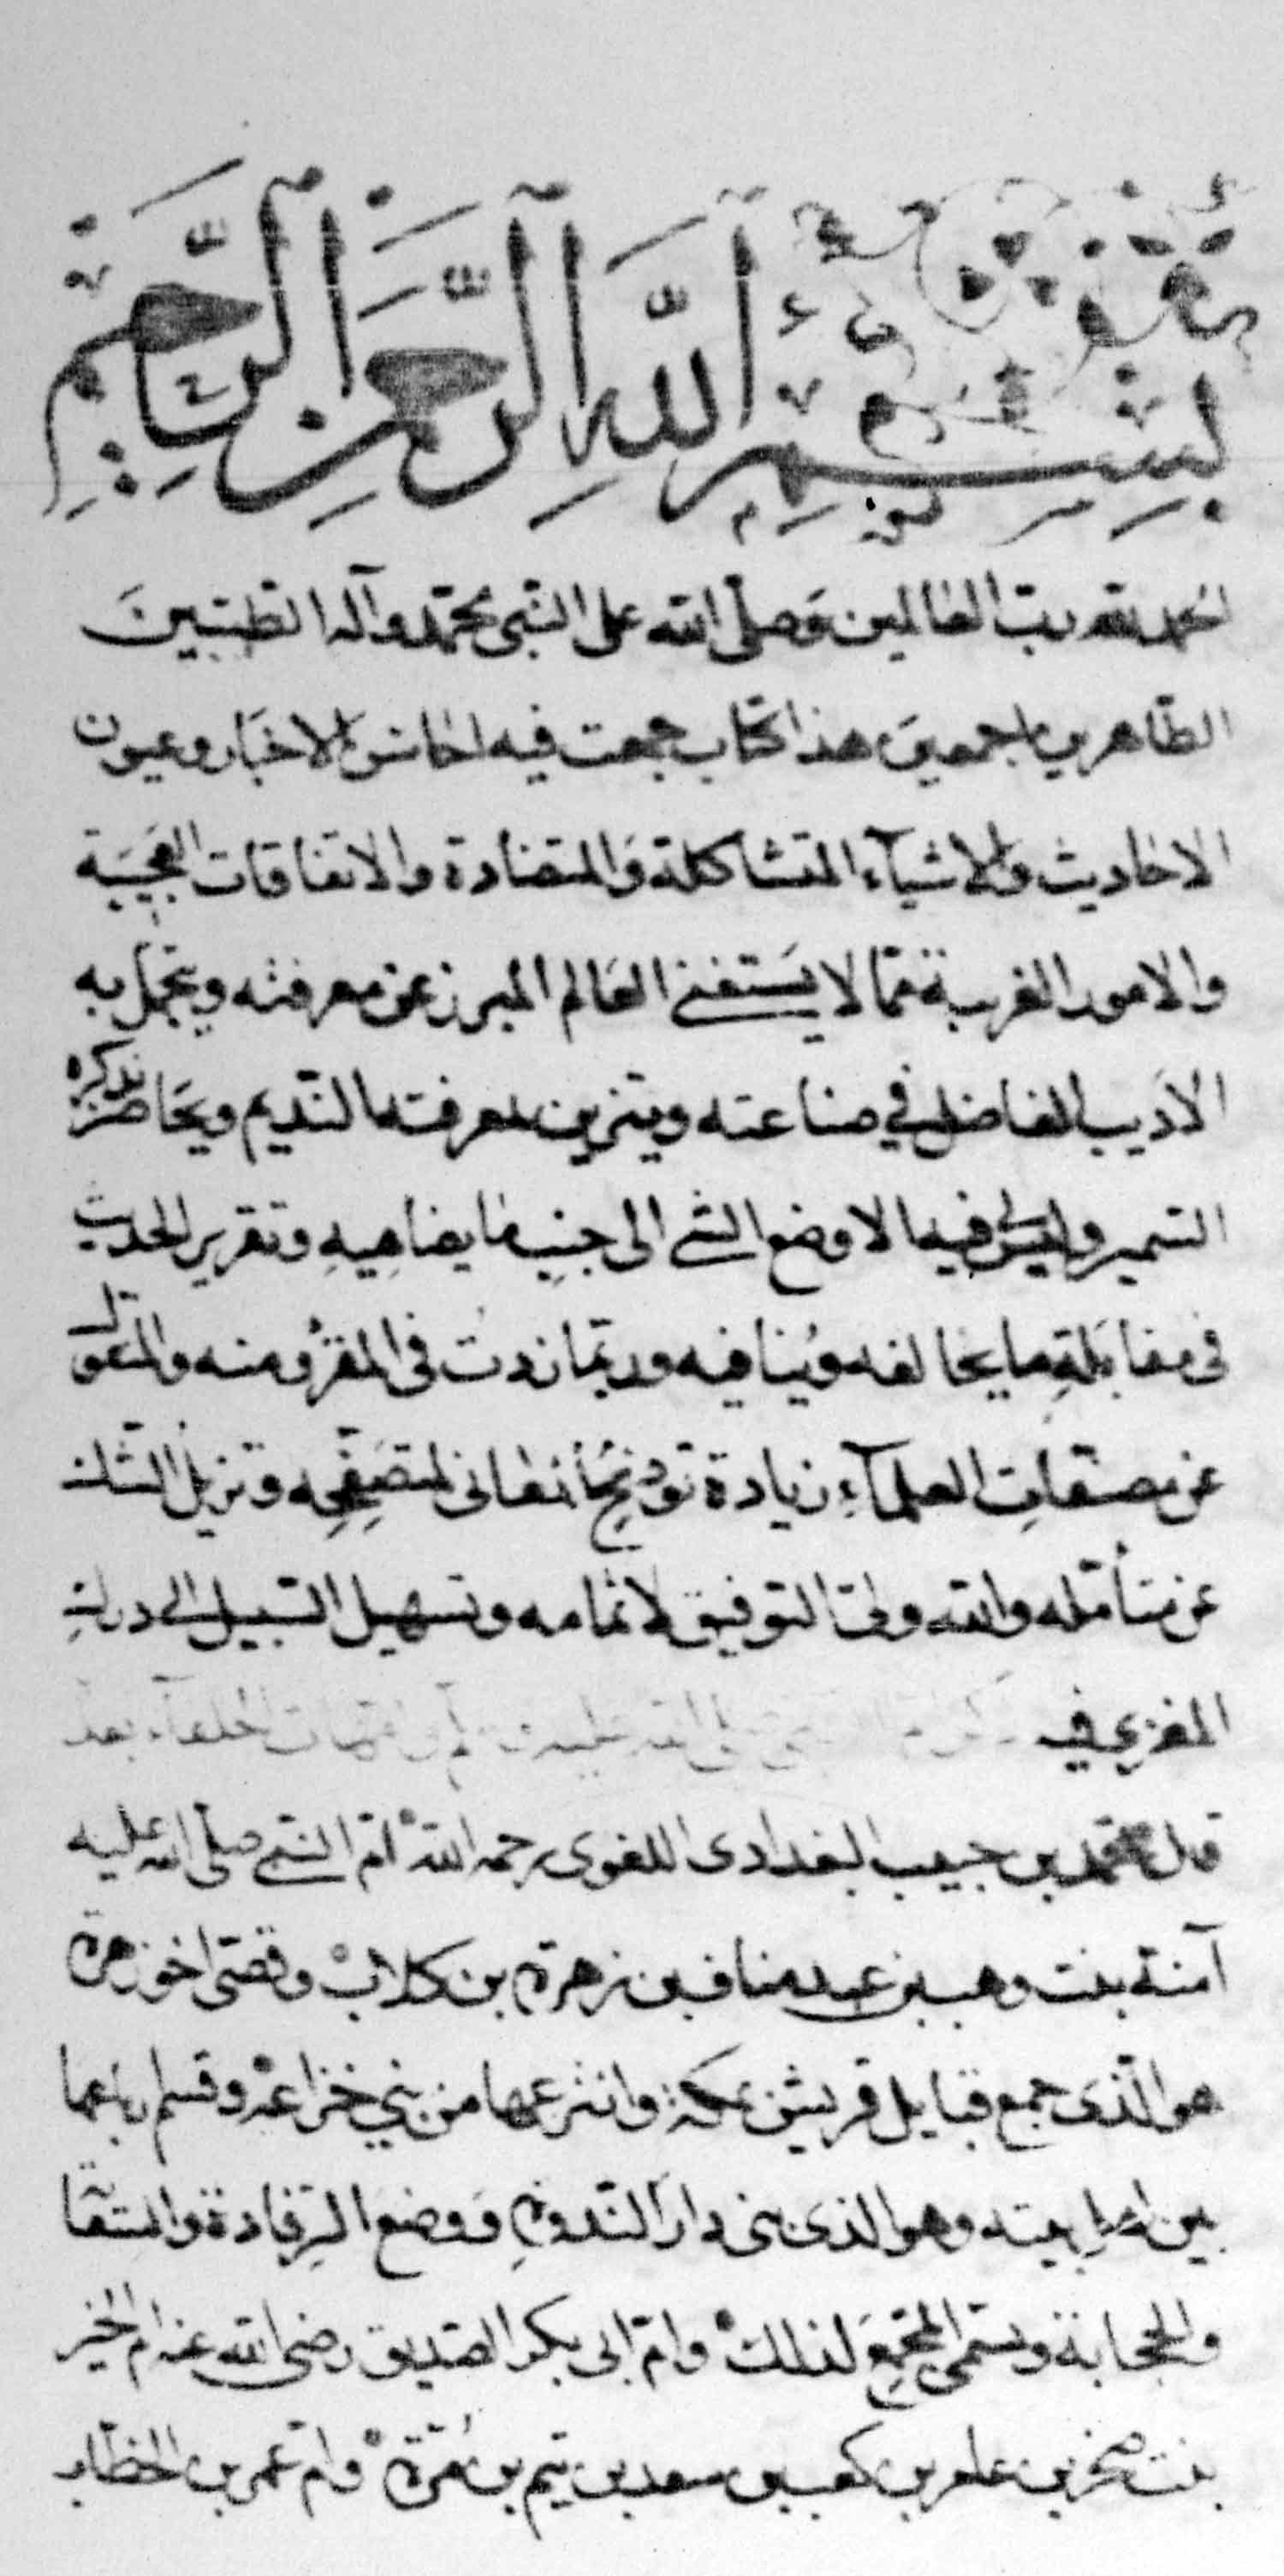 بِسْمِ اللَّهِ الرَّحْمَنِ الرَّحِيمِ
الحمد لله رب العالمين وَصلّى الله على النّبي محمّد وآله الطّيبينَ
الطّاهرين اجمعينَ هذا كتاب جمعت فيه احاسن الاخبار وعيون
الاحاديث والاشيآء المتشاكلة وَالمتضادة والاتفاقات العَجيبَة
والامور الغريبة ممّا لا يَستغنى العَالم المبرز عن معرفته ويتجمل به
الاديب الفاضل في صناعته ويتزين بمعرفتها النّديم ويحَاضر بذكره
السّمير وليسَ فيها الا وضع الشئ الى جنبِ مَا يضاهِيهِ وتقرير الحديث
فى مقابَلَةِ ما يخالفه ويُنافيه وربّما زدتُ فى المقرُو منه والمنقول
عن مصنّفاتِ العلمآءِ زيادة توضِحُ المعانى لمتصَفّحِه وتزيل الشّك
عن متأمّله والله ولىّ التوفيق لاتمامه وتسهيل السّبيل الى دراك
المغزى فيه صلى الله عليه امّهات الخلفآء بعد
قال محمّد بن حبيب البغدادى اللغوى رحمه اللهْ امّ النّبىّ صلّى الله عليه
آمنة بنت وهب بن عبد مناف بن زهرة بن كلابْ وقصىّ اخو زهرة
هو الّذى جمع قبايل قريش بمكّة وانتزعها من بني خزاعةْ وقسم رباعها
بين اهل بيته وهو الذى بنى دارَ النّدوةِ وَوضعَ الرِّفادة والسّقا
والحجابة ويسمّى المُجمِّعَ لذلكْ وامّ ابى بكر الصّديق رضى الله عنه ام الخير
بنت صخر بن عامر بن كعب بن سعد بن تيم بن مُرّةْ وام عمر بن الخطّاب